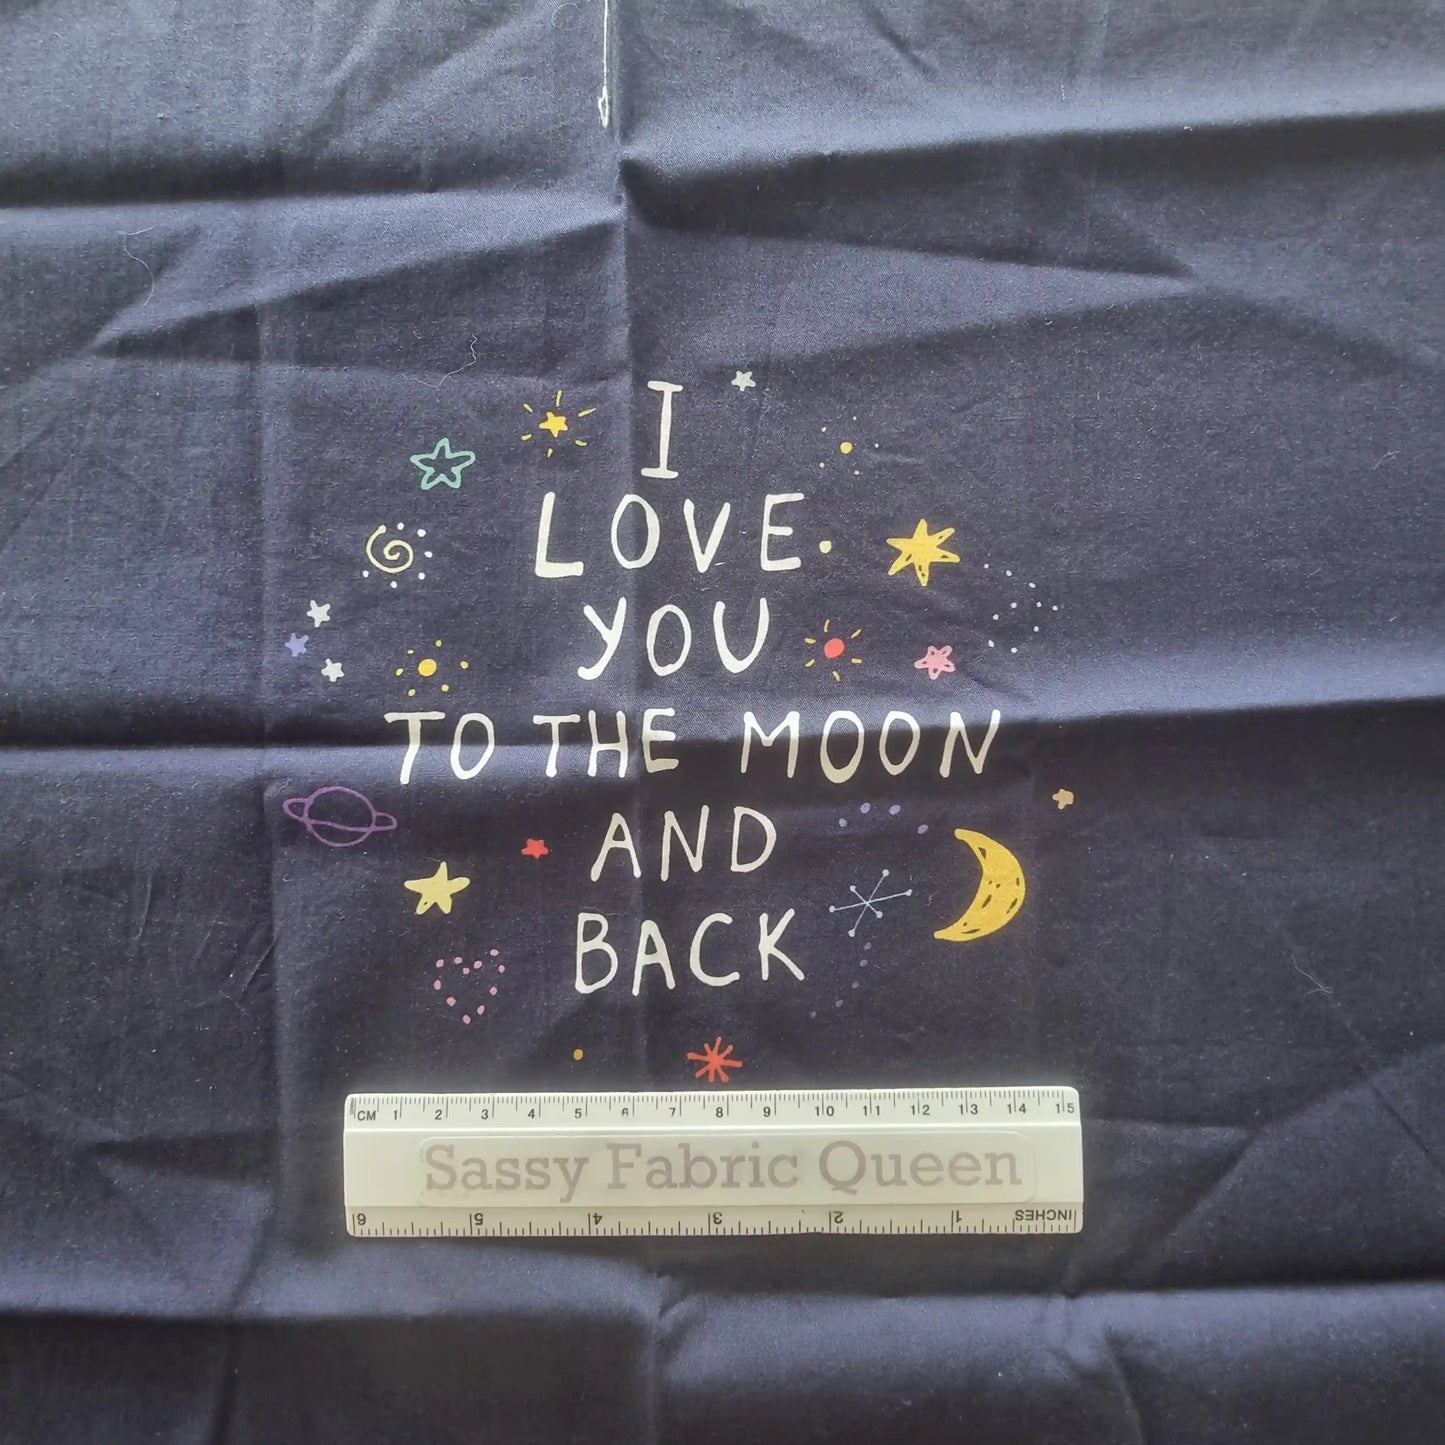 I
LOVE
YOU
TO THE MOON
AND
BACK
CM 1 2 3 4 5 6 7 8 9 10 11 12 13 14 15
Sassy Fabric Queen
6 5 4 3 2 1 INCHES